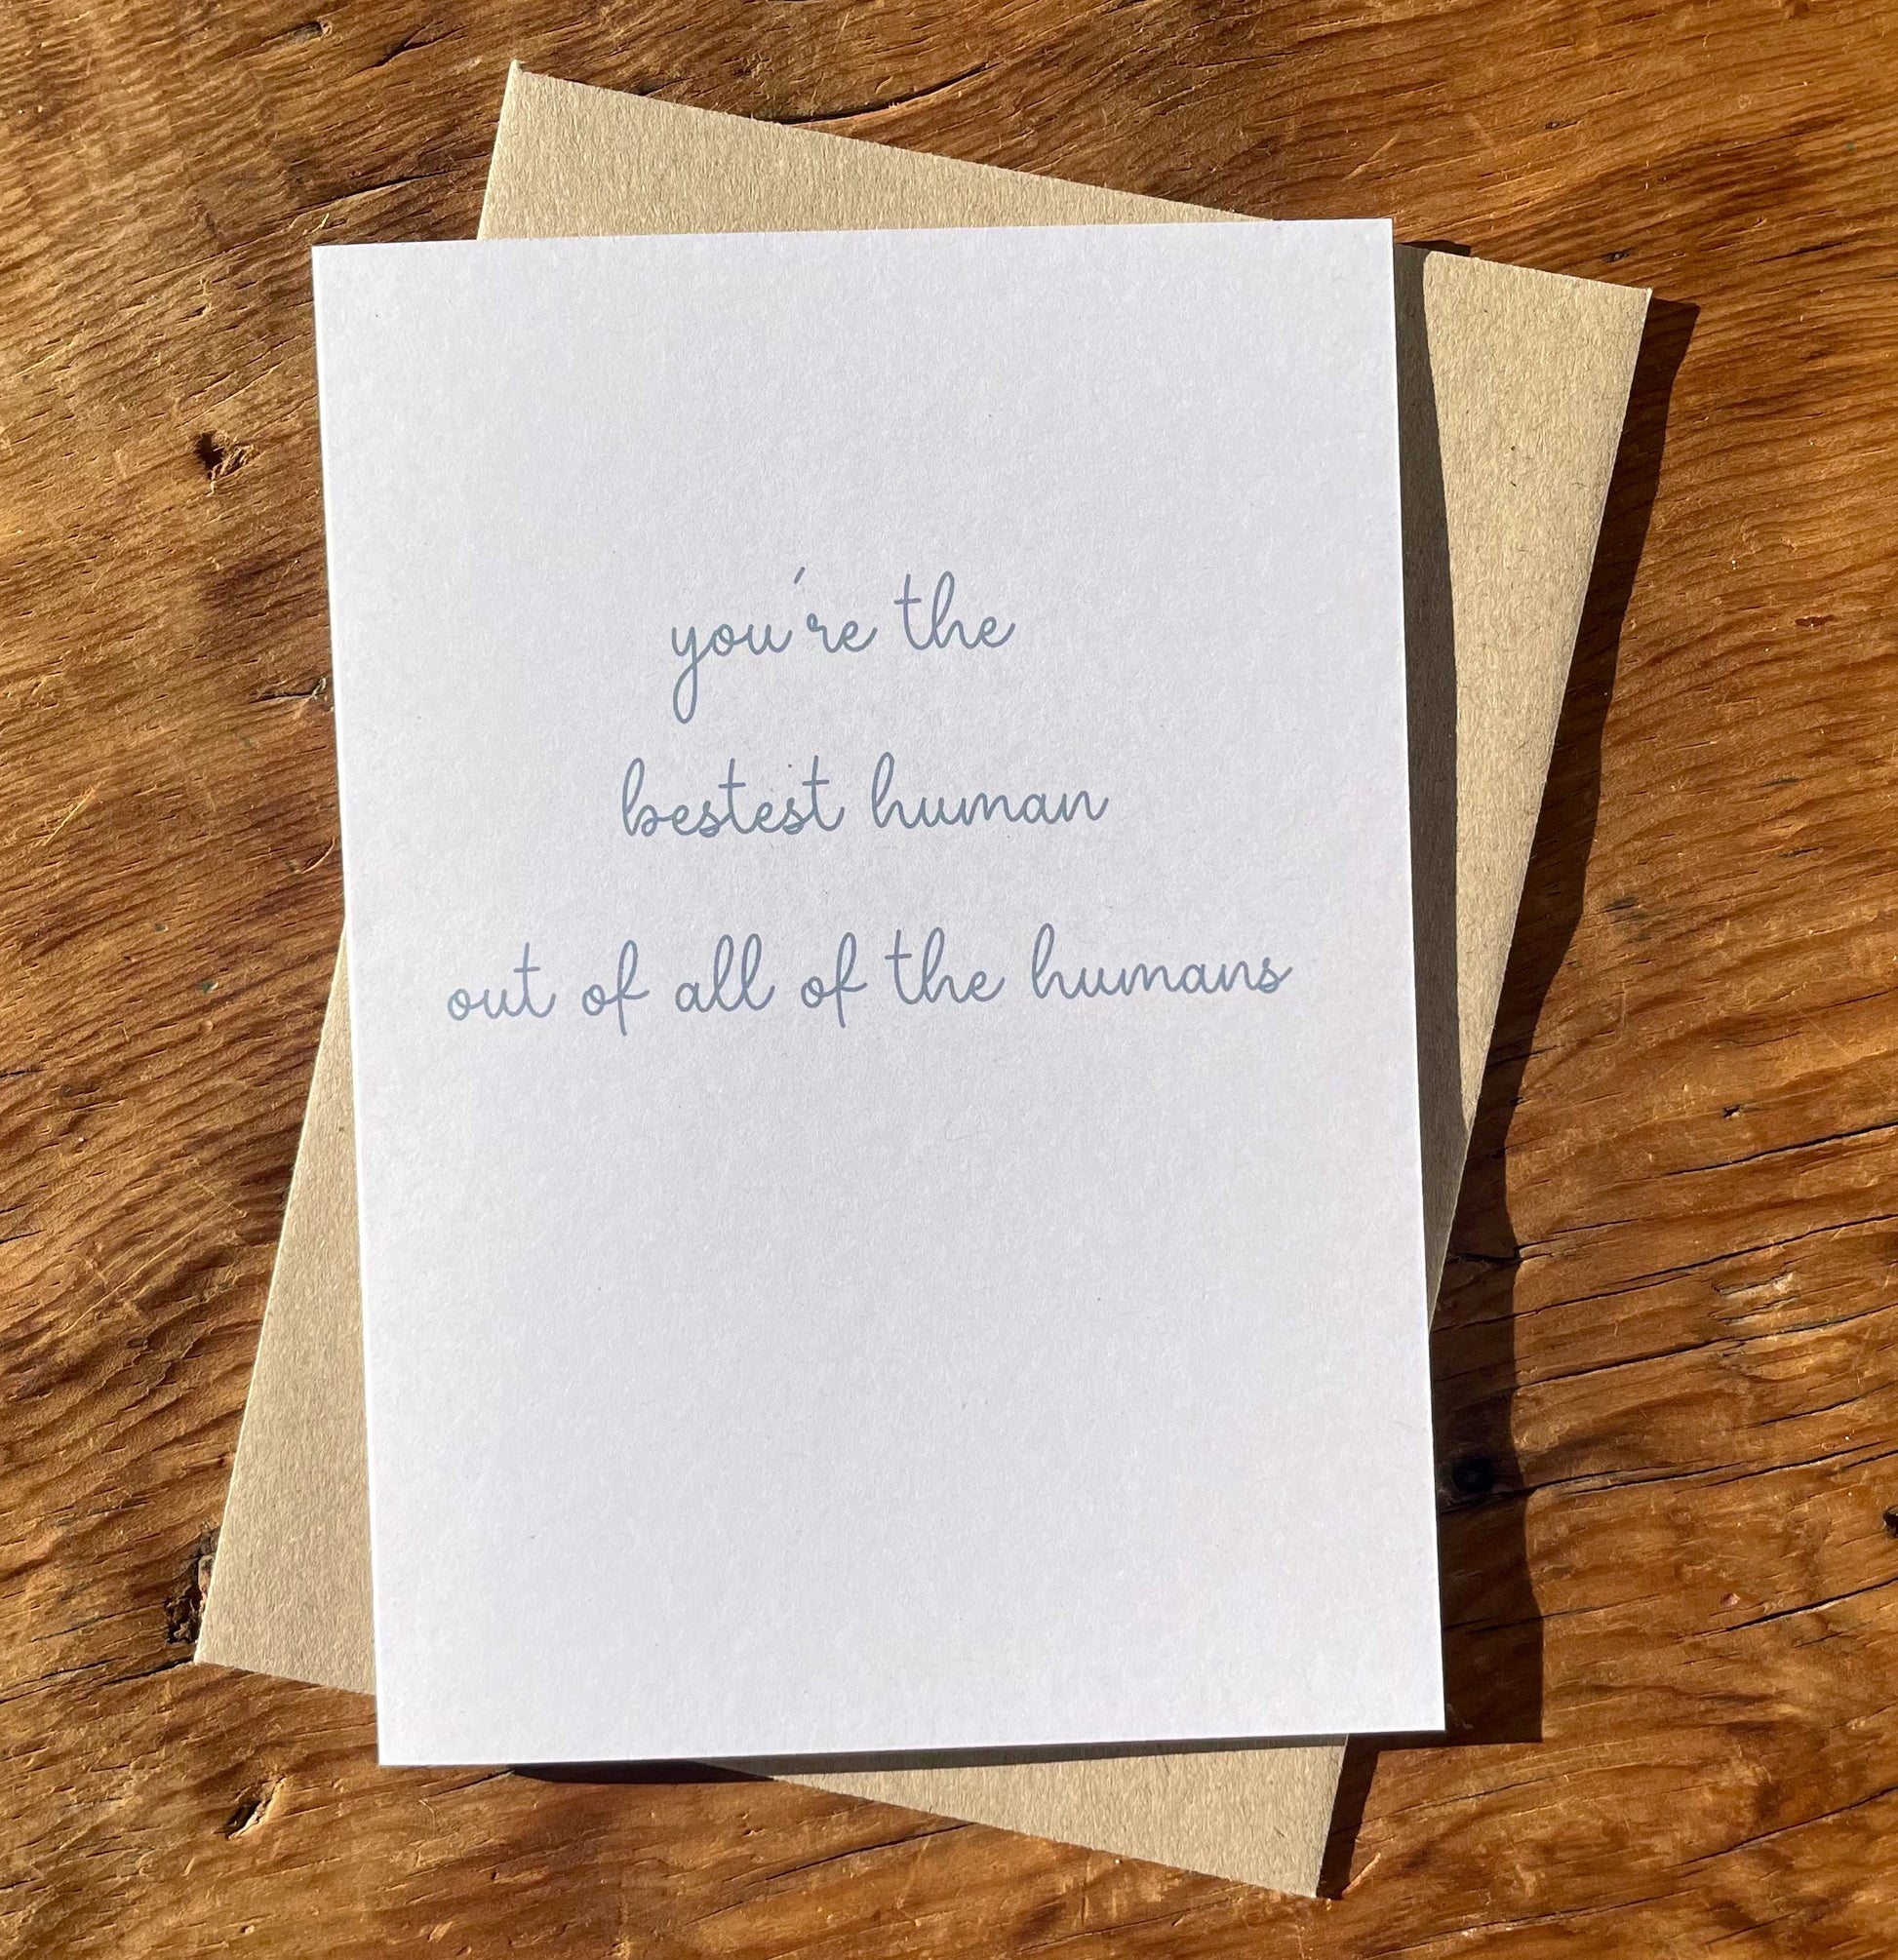 you're the
bestest human
out of all of the humans